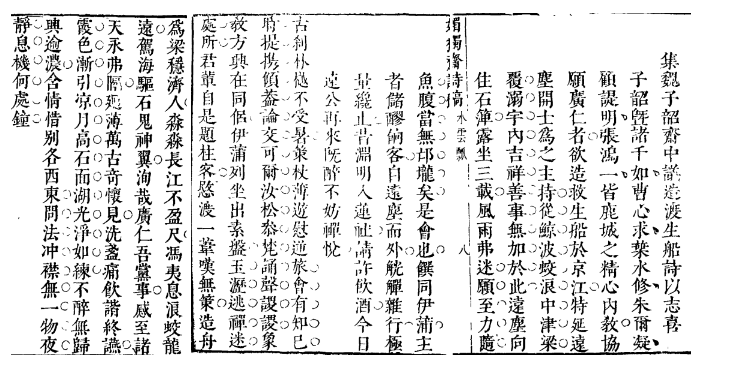 集魏子韶齋中議造渡生船詩以志喜
子韶曁諸千如曹心求葉水修朱爾凝
顧諟明張鴻一皆鹿城之精心内教協
願廣仁者欲造救生船於京江特延遠
塵開士爲之主持從鯨波蛟浪中津梁
覆溺宇内吉祥善事無加於此遠塵向
住石箄露坐三載風雨弗迷願至力隨
媚獨齋詩稿 水雲瓢 八
魚腹當無邛壠矣是會也饌同伊蒲主
者儲醪餉客自遠塵而外觥籌雜行極
量纔止昔淵明入蓮社請許飲酒今日
遠公再來旣醉不妨禪悅
古刹林樾不受暑葉杖薄遊慰逆旅會有知已
時提携傾蓋論交可爾汝松黍梵誦聲謖謖象
敎方興在同侶伊蒲列坐出素盤玉瀝逃禪迷
處所君輩自是題柱客愍渡一葦嘆無策造舟
爲梁穩濟人淼淼長江不盈尺馮夷息浪蛟龍
遠駕海驅石鬼神翼洵哉廣仁吾黨事感至諸
天永弗隔廵薄萬古奇懷見洗盞痛飲諧終讌
霞色漸引凉月高石面湖光淨如練不醉無歸
興逾濃含情惜别各西東問法冲襟無一物夜
靜息機何處鐘